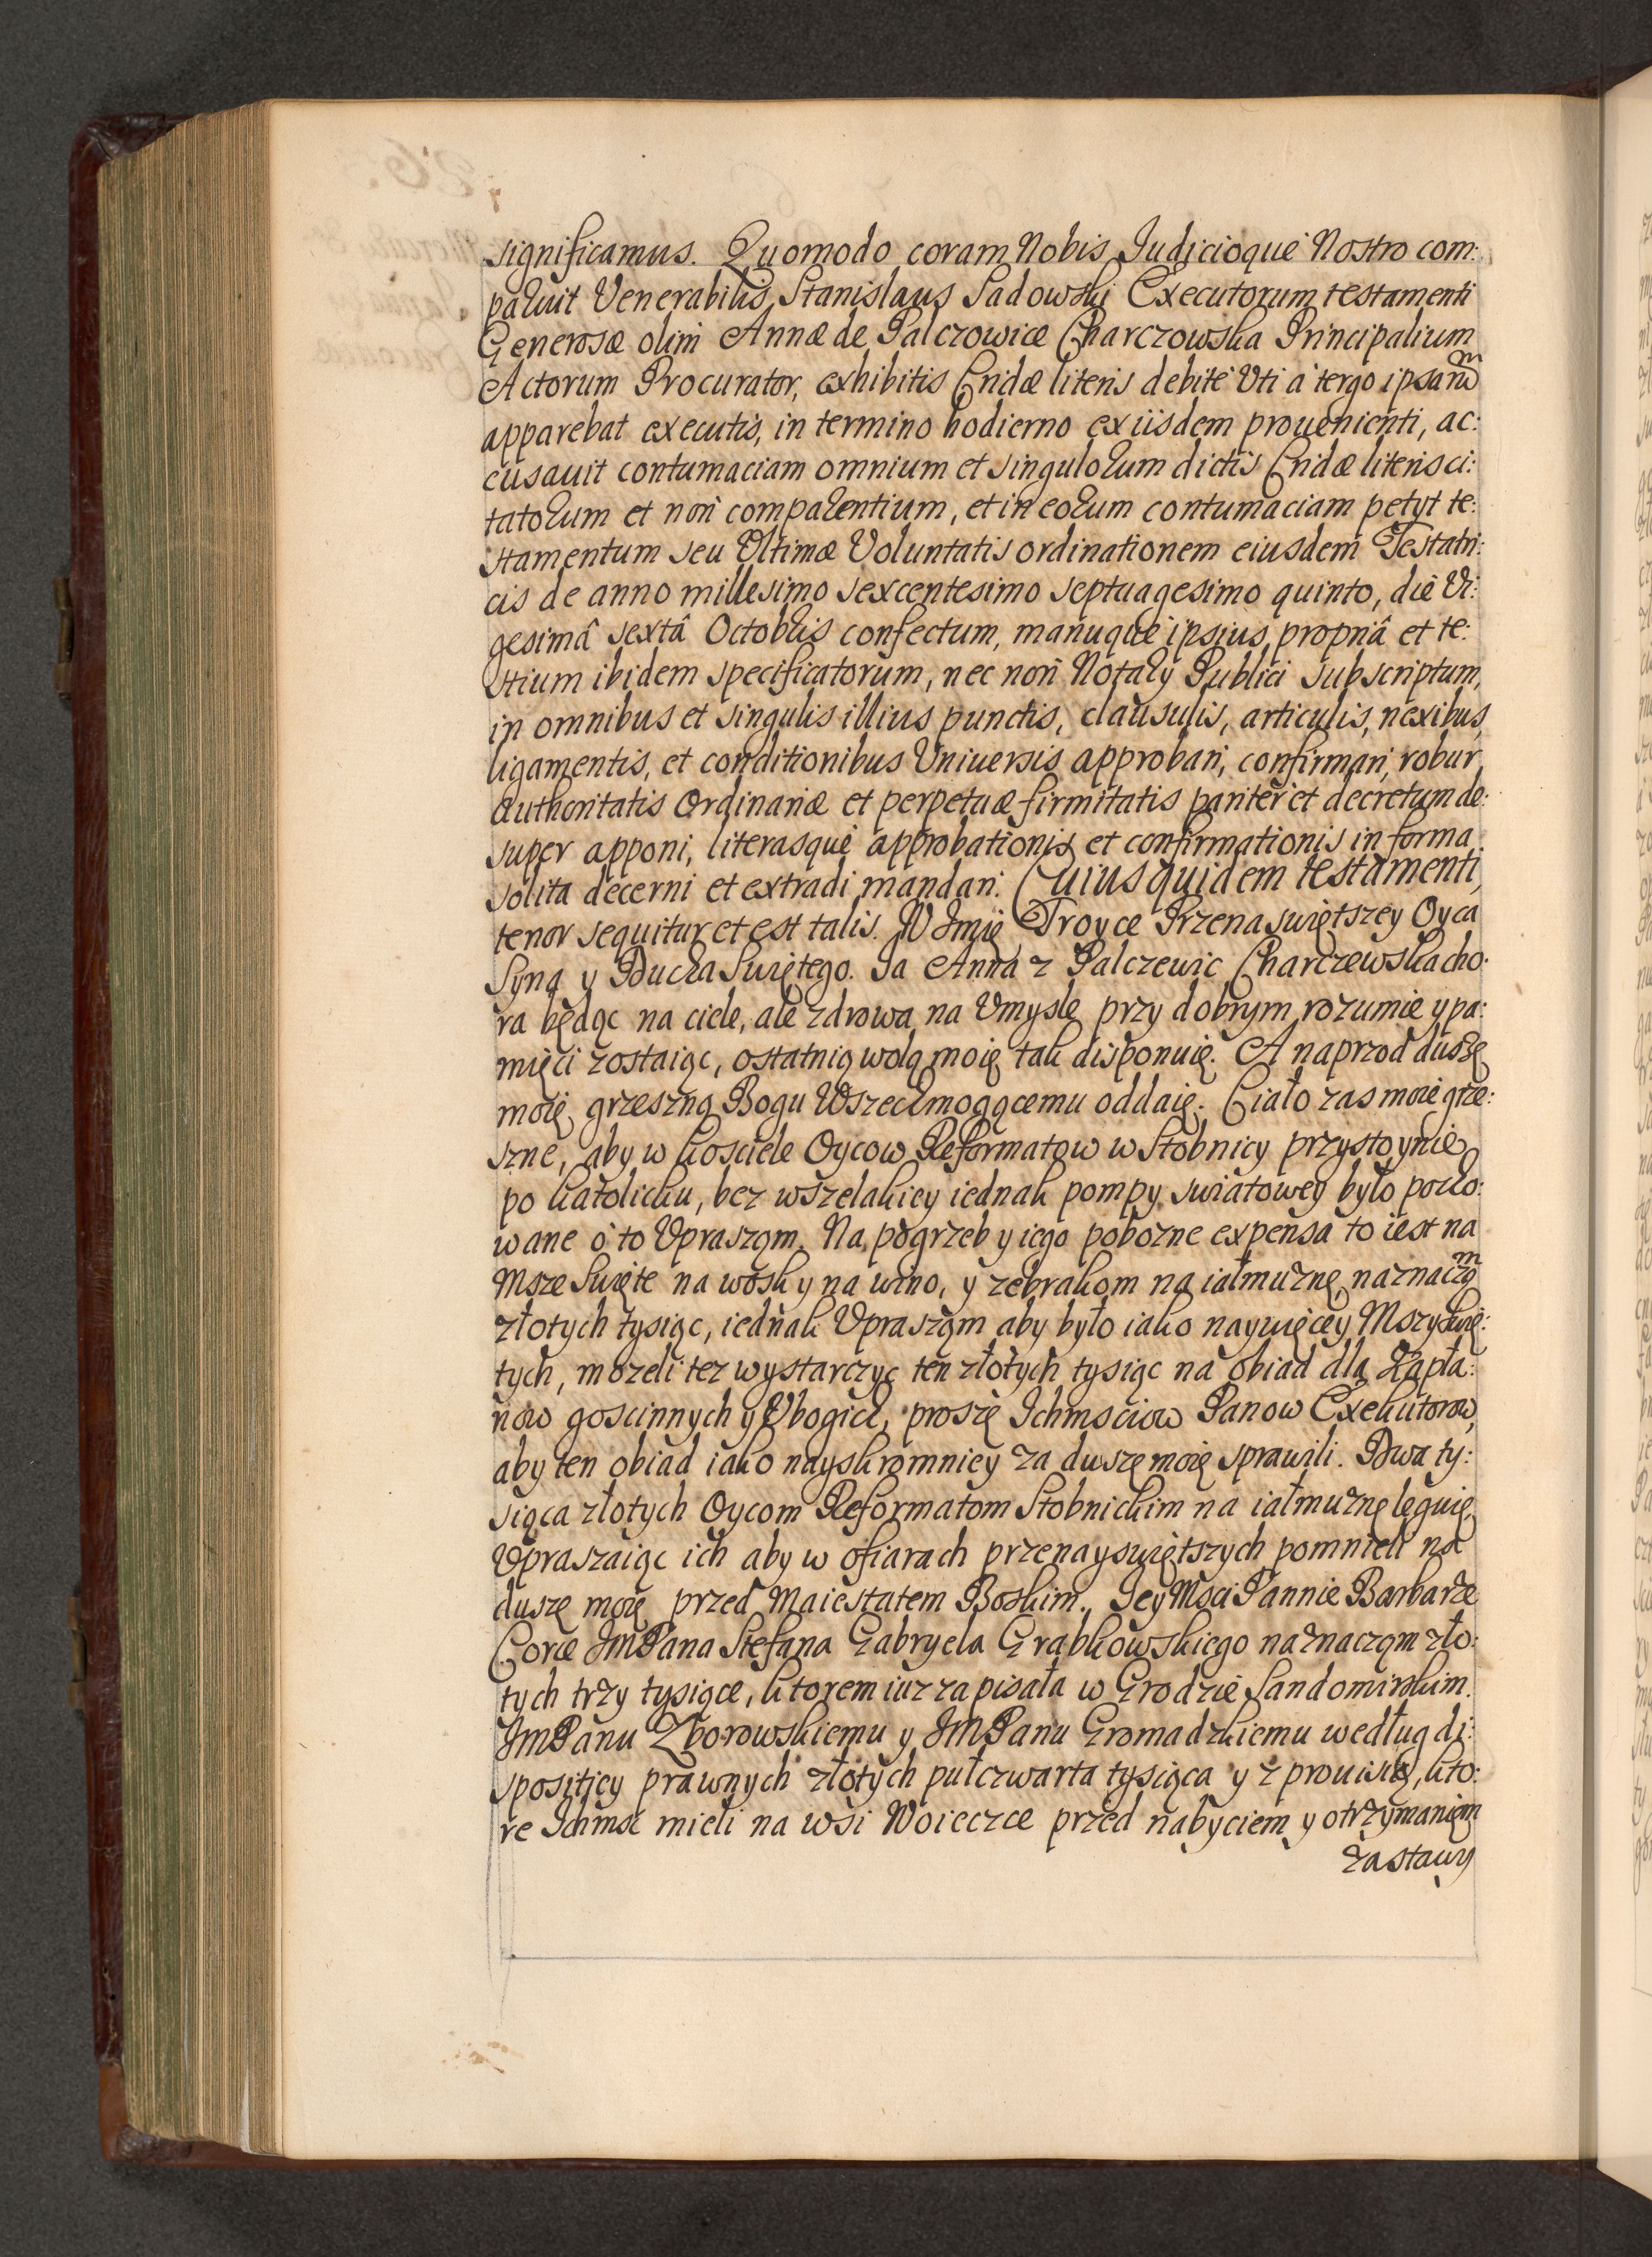 significamus. Quomodo coram Nobis Judicioque Nostro com:
paruit Venerabilis Stanislaus Sadowski Executorum testamenti
Generosæ olim Annæ de Palczowice Charczowska Principalium
Actorum Procurator, exhibitis Cridæ literis debite Vti à tergo ipsarũ
apparebat executis, in termino hodierno ex iisdem prouenienti, ac:
cusauit contumaciam omnium et singulorum dictis Cridæ literis ci:
tatorum et non comparentium, et in eorum contumaciam petyt te:
stamentum seu Vltimæ Voluntatis ordinationem eiusdem Testatri:
cis de anno millesimo sexcentesimo septuagesimo quinto, die Vi:
gesimâ sextâ Octobris confectum, manuque ipsius propriâ et te:
stium ibidem specificatorum, nec non Notary Publici subscriptum,
in omnibus et singulis illius punctis, clausulis, articulis, nexibus,
ligamentis, et conditionibus Vniuersis approbari, confirmari, robur
Authoritatis Ordinariæ et perpetuæ firmitatis pariter et decretum de:
super apponi, literasque approbationis et confirmationis in forma
solita decerni et extradi mandari. Cuius quidem testamenti
tenor sequitur et est talis. W Jmię Troyce Przenaswiętszey Oyca
Syna y Ducha Swiętego. Ja Anna z Palczewic Charczewska cho:
ra będąc na ciele, ale zdrowa na Vmysle przy dobrym rozumie y pa:
mięci zostaiąc, ostatnią wolą moię tak disponuię. A naprzod duszę
moię grzeszną Bogu Wszechmogącemu oddaię. Ciało zas moie grze:
szne, aby w kosciele Oycow Reformatow w Stobnicy przystoynie
po katolicku, bez wszelakiey iednak pompy swiatowey było pocho:
wane o to Vpraszam. Na pogrzeb y iego pobozne expensa to iest na
Msze Swięte na wosk y na wino, y zebrakom na iałmuznę, naznaczą͂
złotych tysiąc, iednak Vprasząm aby było iako naywięcey Mszy Swię:
tych, mozeli tez wystarczyc ten złotych tysiąc na obiad dla Kapła:
now goscinnych y Vbogich, proszę Ichmsciow Panow Exekutorow,
aby ten obiad iako nayskromniey za duszę moię sprawili. Dwa ty:
siąca złotych Oycom Reformatom Stobnickim na iałmuznę leguię,
Vpraszaiąc ich aby w ofiarach przenayswiętszych pomnieli na
duszę moię przed Maiestatem Boskim. Jey Msci Pannie Barbarze
Corce JmPana Stefana Gabryela Grabkowskiego naznacząm zło:
tych trzy tysiące, ktorem iuz zapisała w Grodzie Sandomirskim.
JmPanu Zborowskiemu y JmPanu Gromadzkiemu według di:
spositiey prawnych złotych pułczwarta tysiąca y z prouisią, kto:
re Ichmsc mieli na wsi Woieczce przed nabyciem y otrzymaniem
zastawy